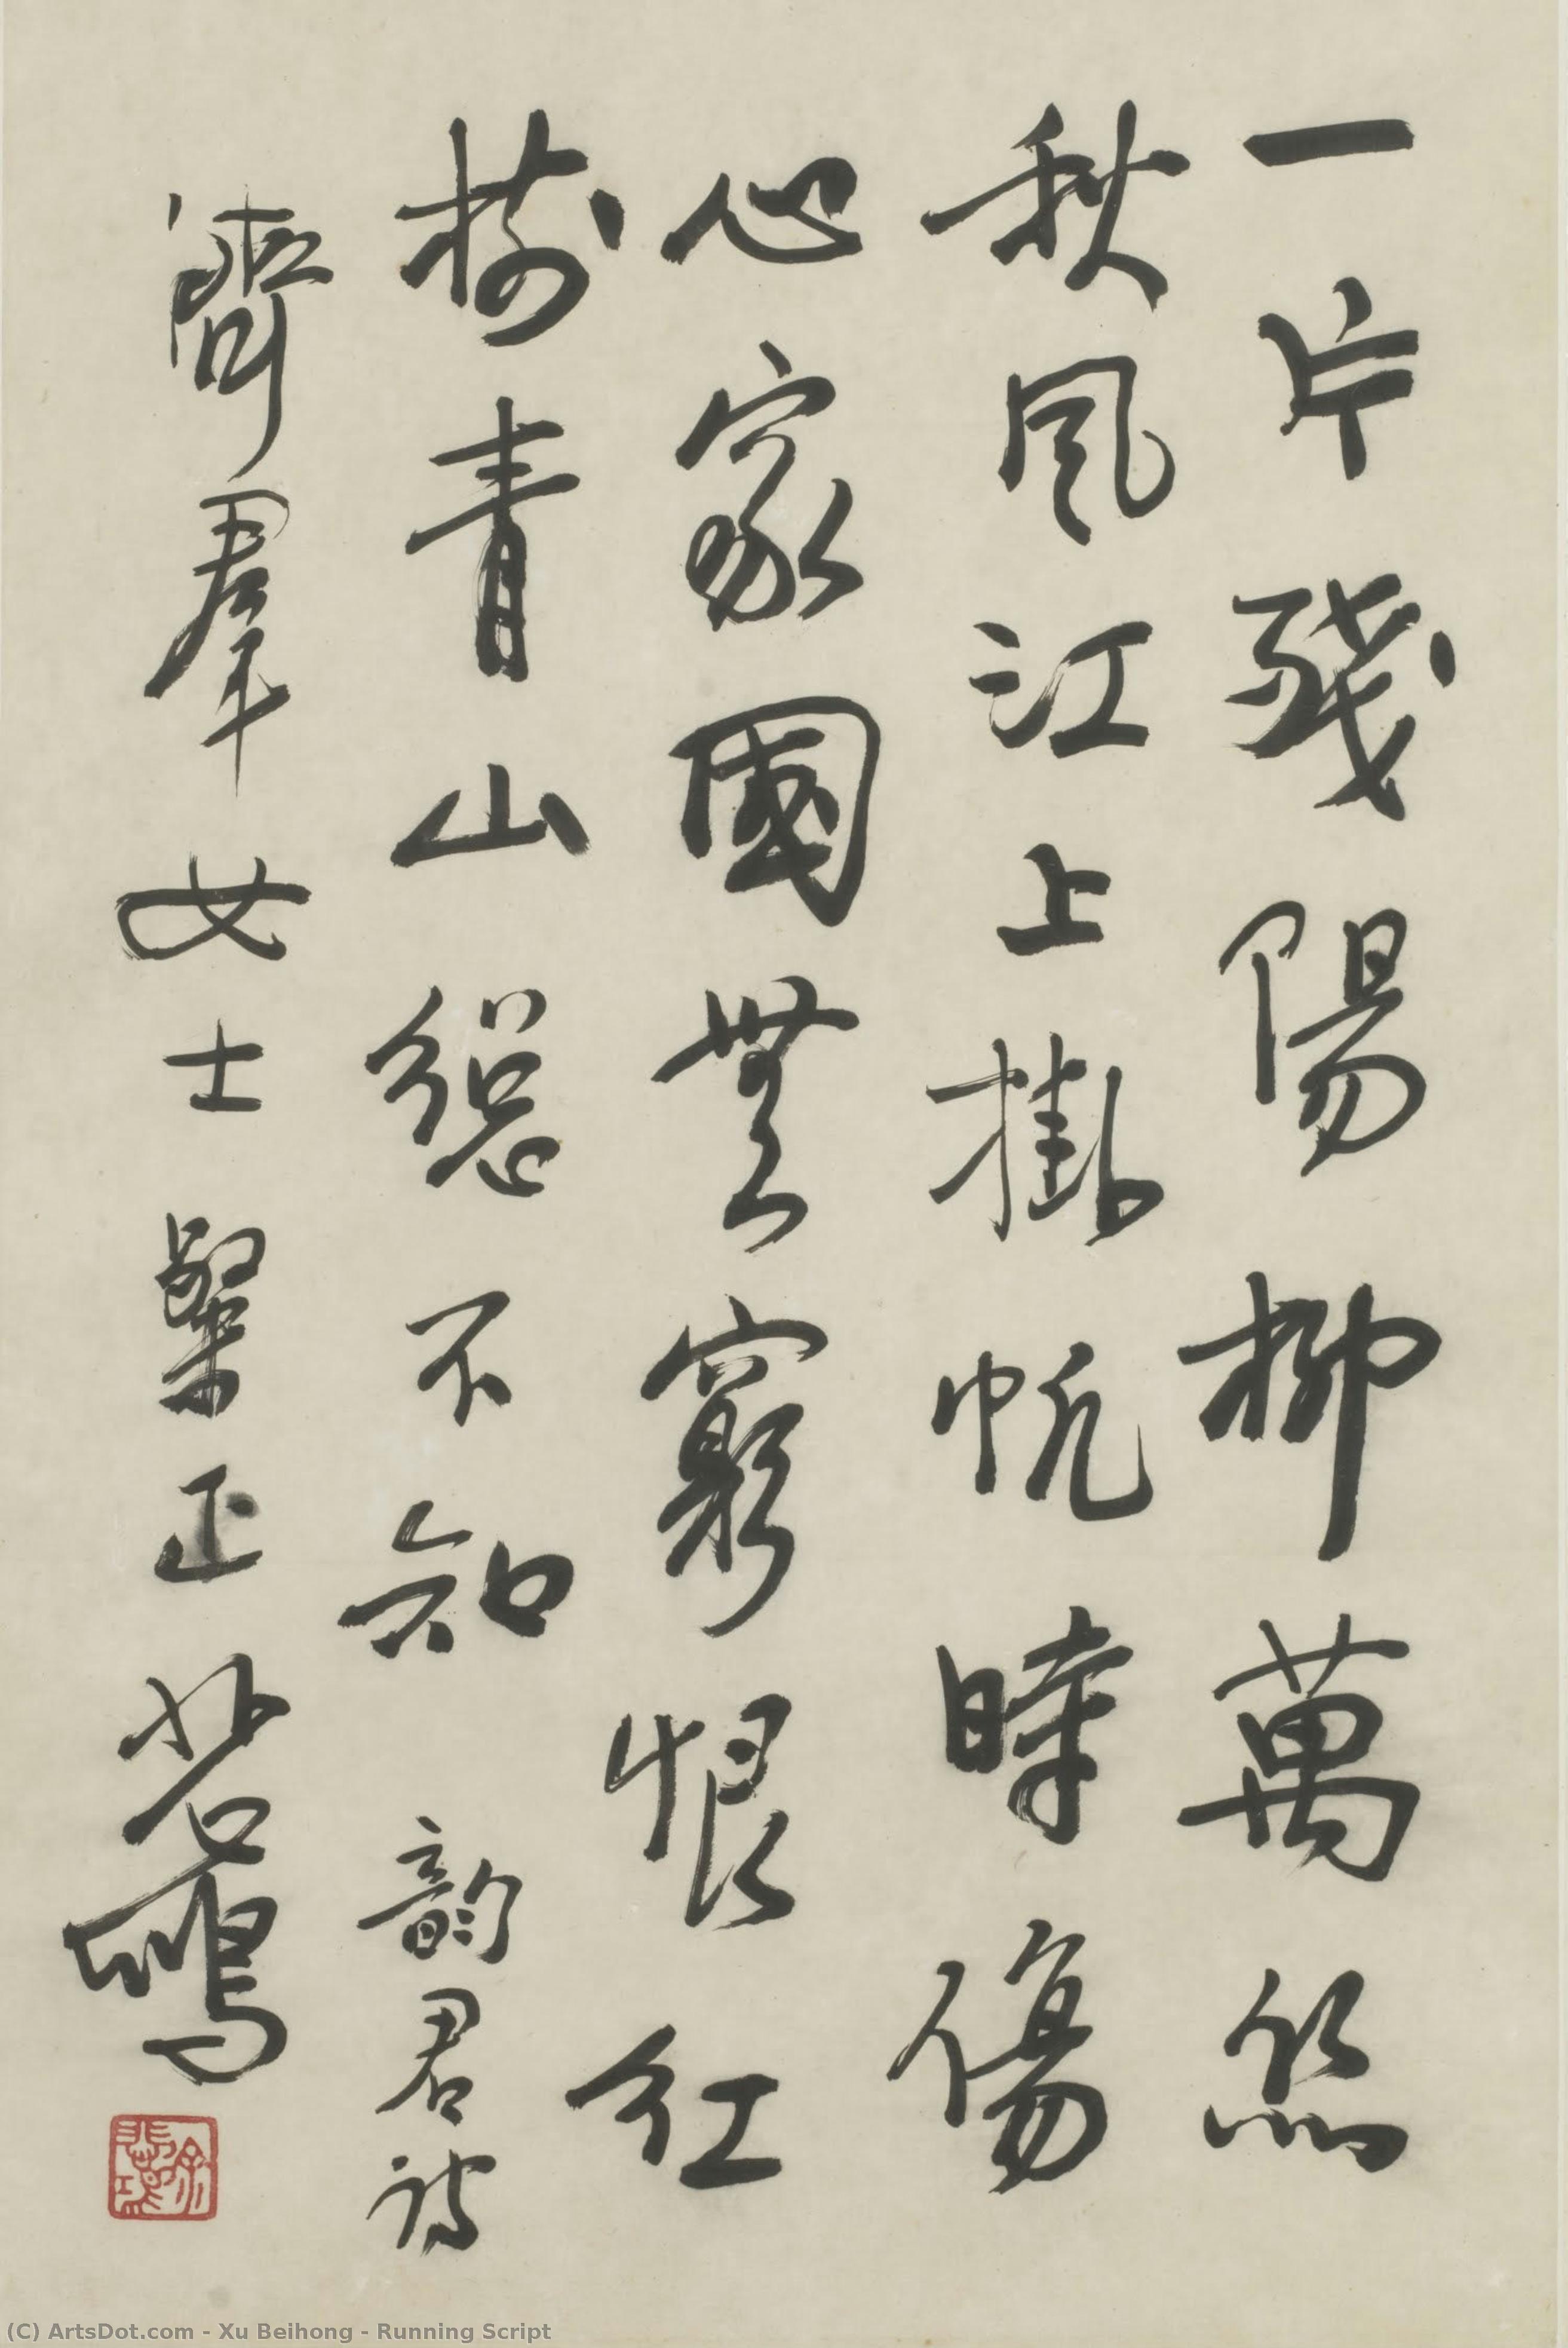 一片殘陽柳萬絲
秋風江上掛帆時傷
心家國無窮恨紅
樹青山總不知 韵君詩
濟羣女士粲正 悲鴻
徐悲鴻
(C) ArtsDot.com - Xu Beihong - Running Script